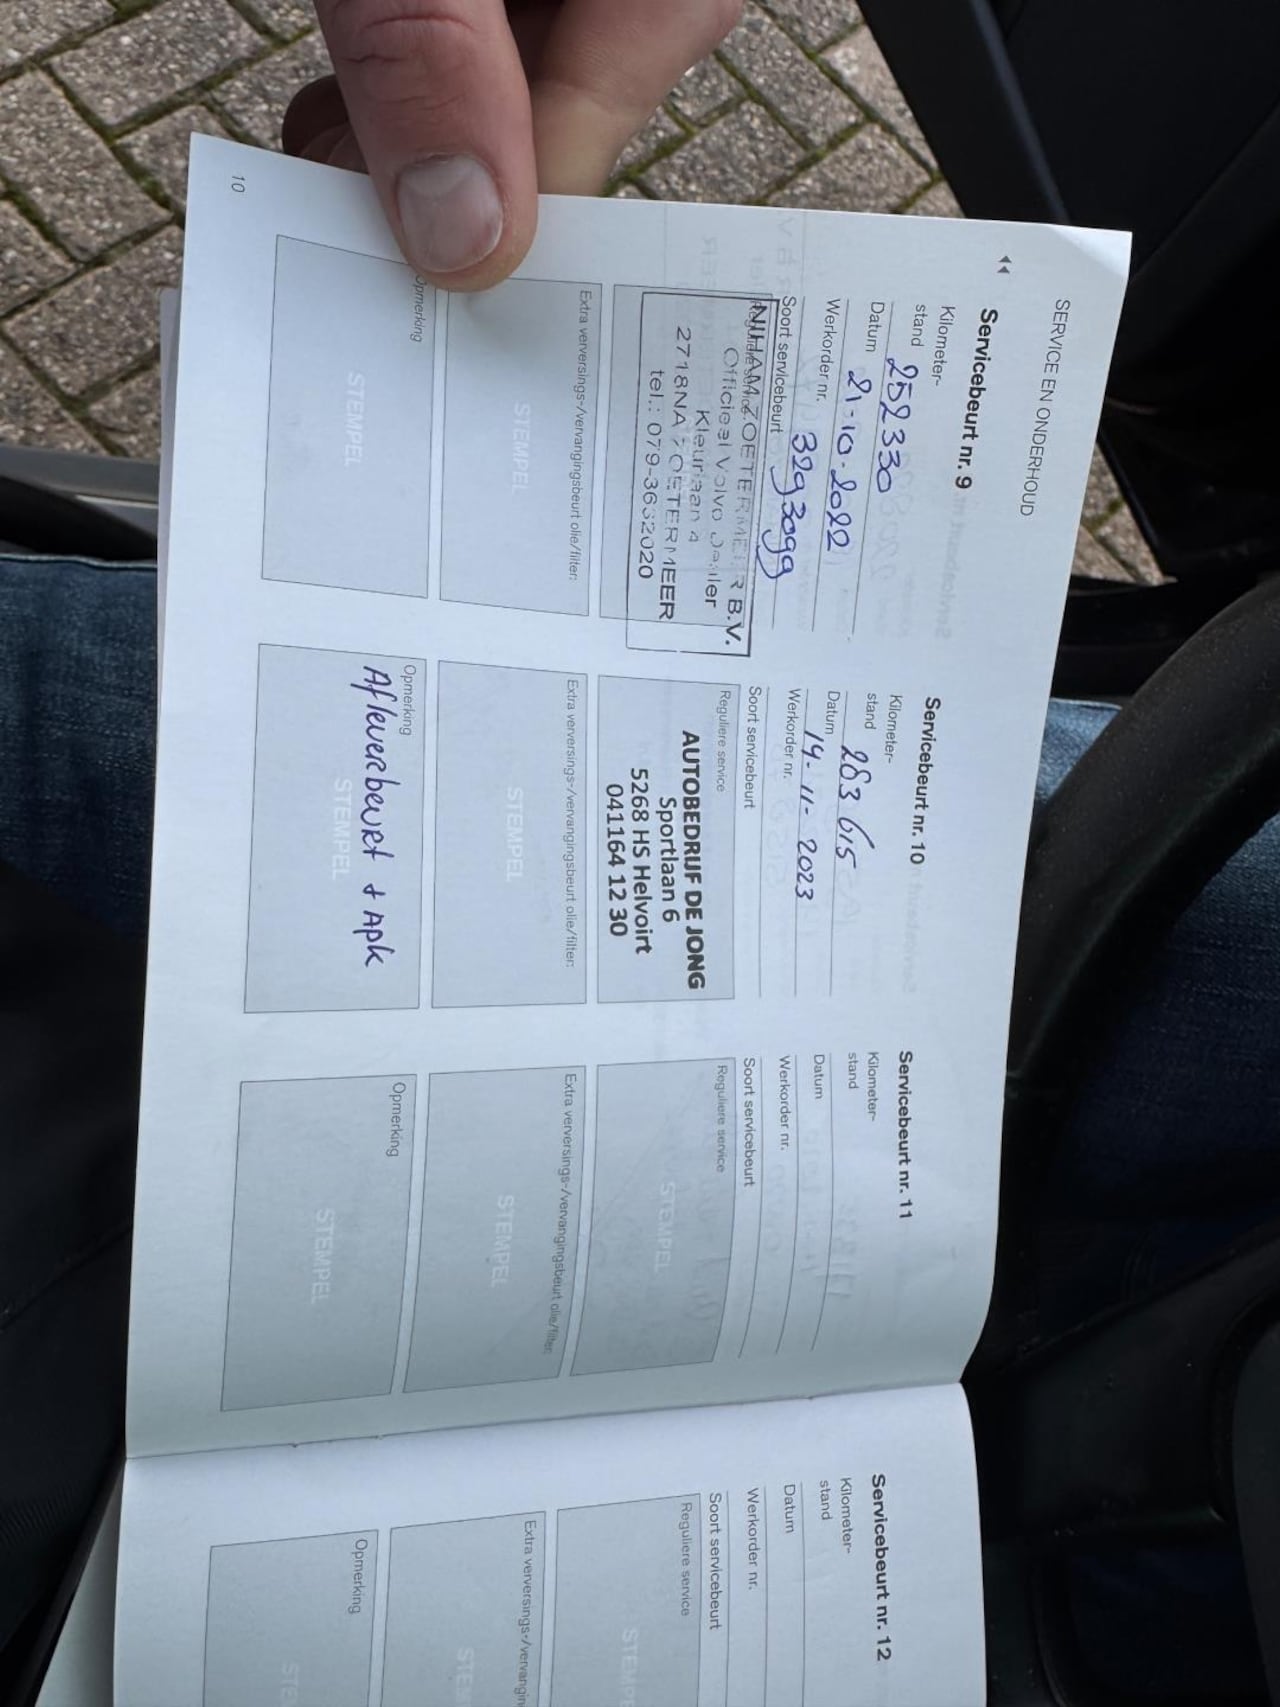 SERVICE EN ONDERHOUD
Servicebeurt nr. 9
Kilometer-
stand 252330
Datum 21-10-2022
Werkorder nr. 3293099
Soort servicebeurt
Reguliere service
NIHAM ZOETERMEER B.V.
Officieel Volvo Dealer
Kleurlaan 4
2718NA ZOETERMEER
tel.: 079-3632020
Extra verversings-/vervangingsbeurt olie/filter:
STEMPEL
Opmerking
STEMPEL
10
Servicebeurt nr. 10
Kilometer-
stand 283615
Datum 14-11-2023
Werkorder nr.
Soort servicebeurt
Reguliere service
AUTOBEDRIJF DE JONG
Sportlaan 6
5268 HS Helvoirt
041164 12 30
Extra verversings-/vervangingsbeurt olie/filter:
STEMPEL
Opmerking
Afleverbeurt + Apk
STEMPEL
Servicebeurt nr. 11
Kilometer-
stand
Datum
Werkorder nr.
Soort servicebeurt
Reguliere service
STEMPEL
Extra verversings-/vervangingsbeurt olie/filter:
STEMPEL
Opmerking
STEMPEL
Servicebeurt nr. 12
Kilometer-
stand
Datum
Werkorder nr.
Soort servicebeurt
Reguliere service
STEMPE
Extra verversings-/vervangin
STEM
Opmerking
STE